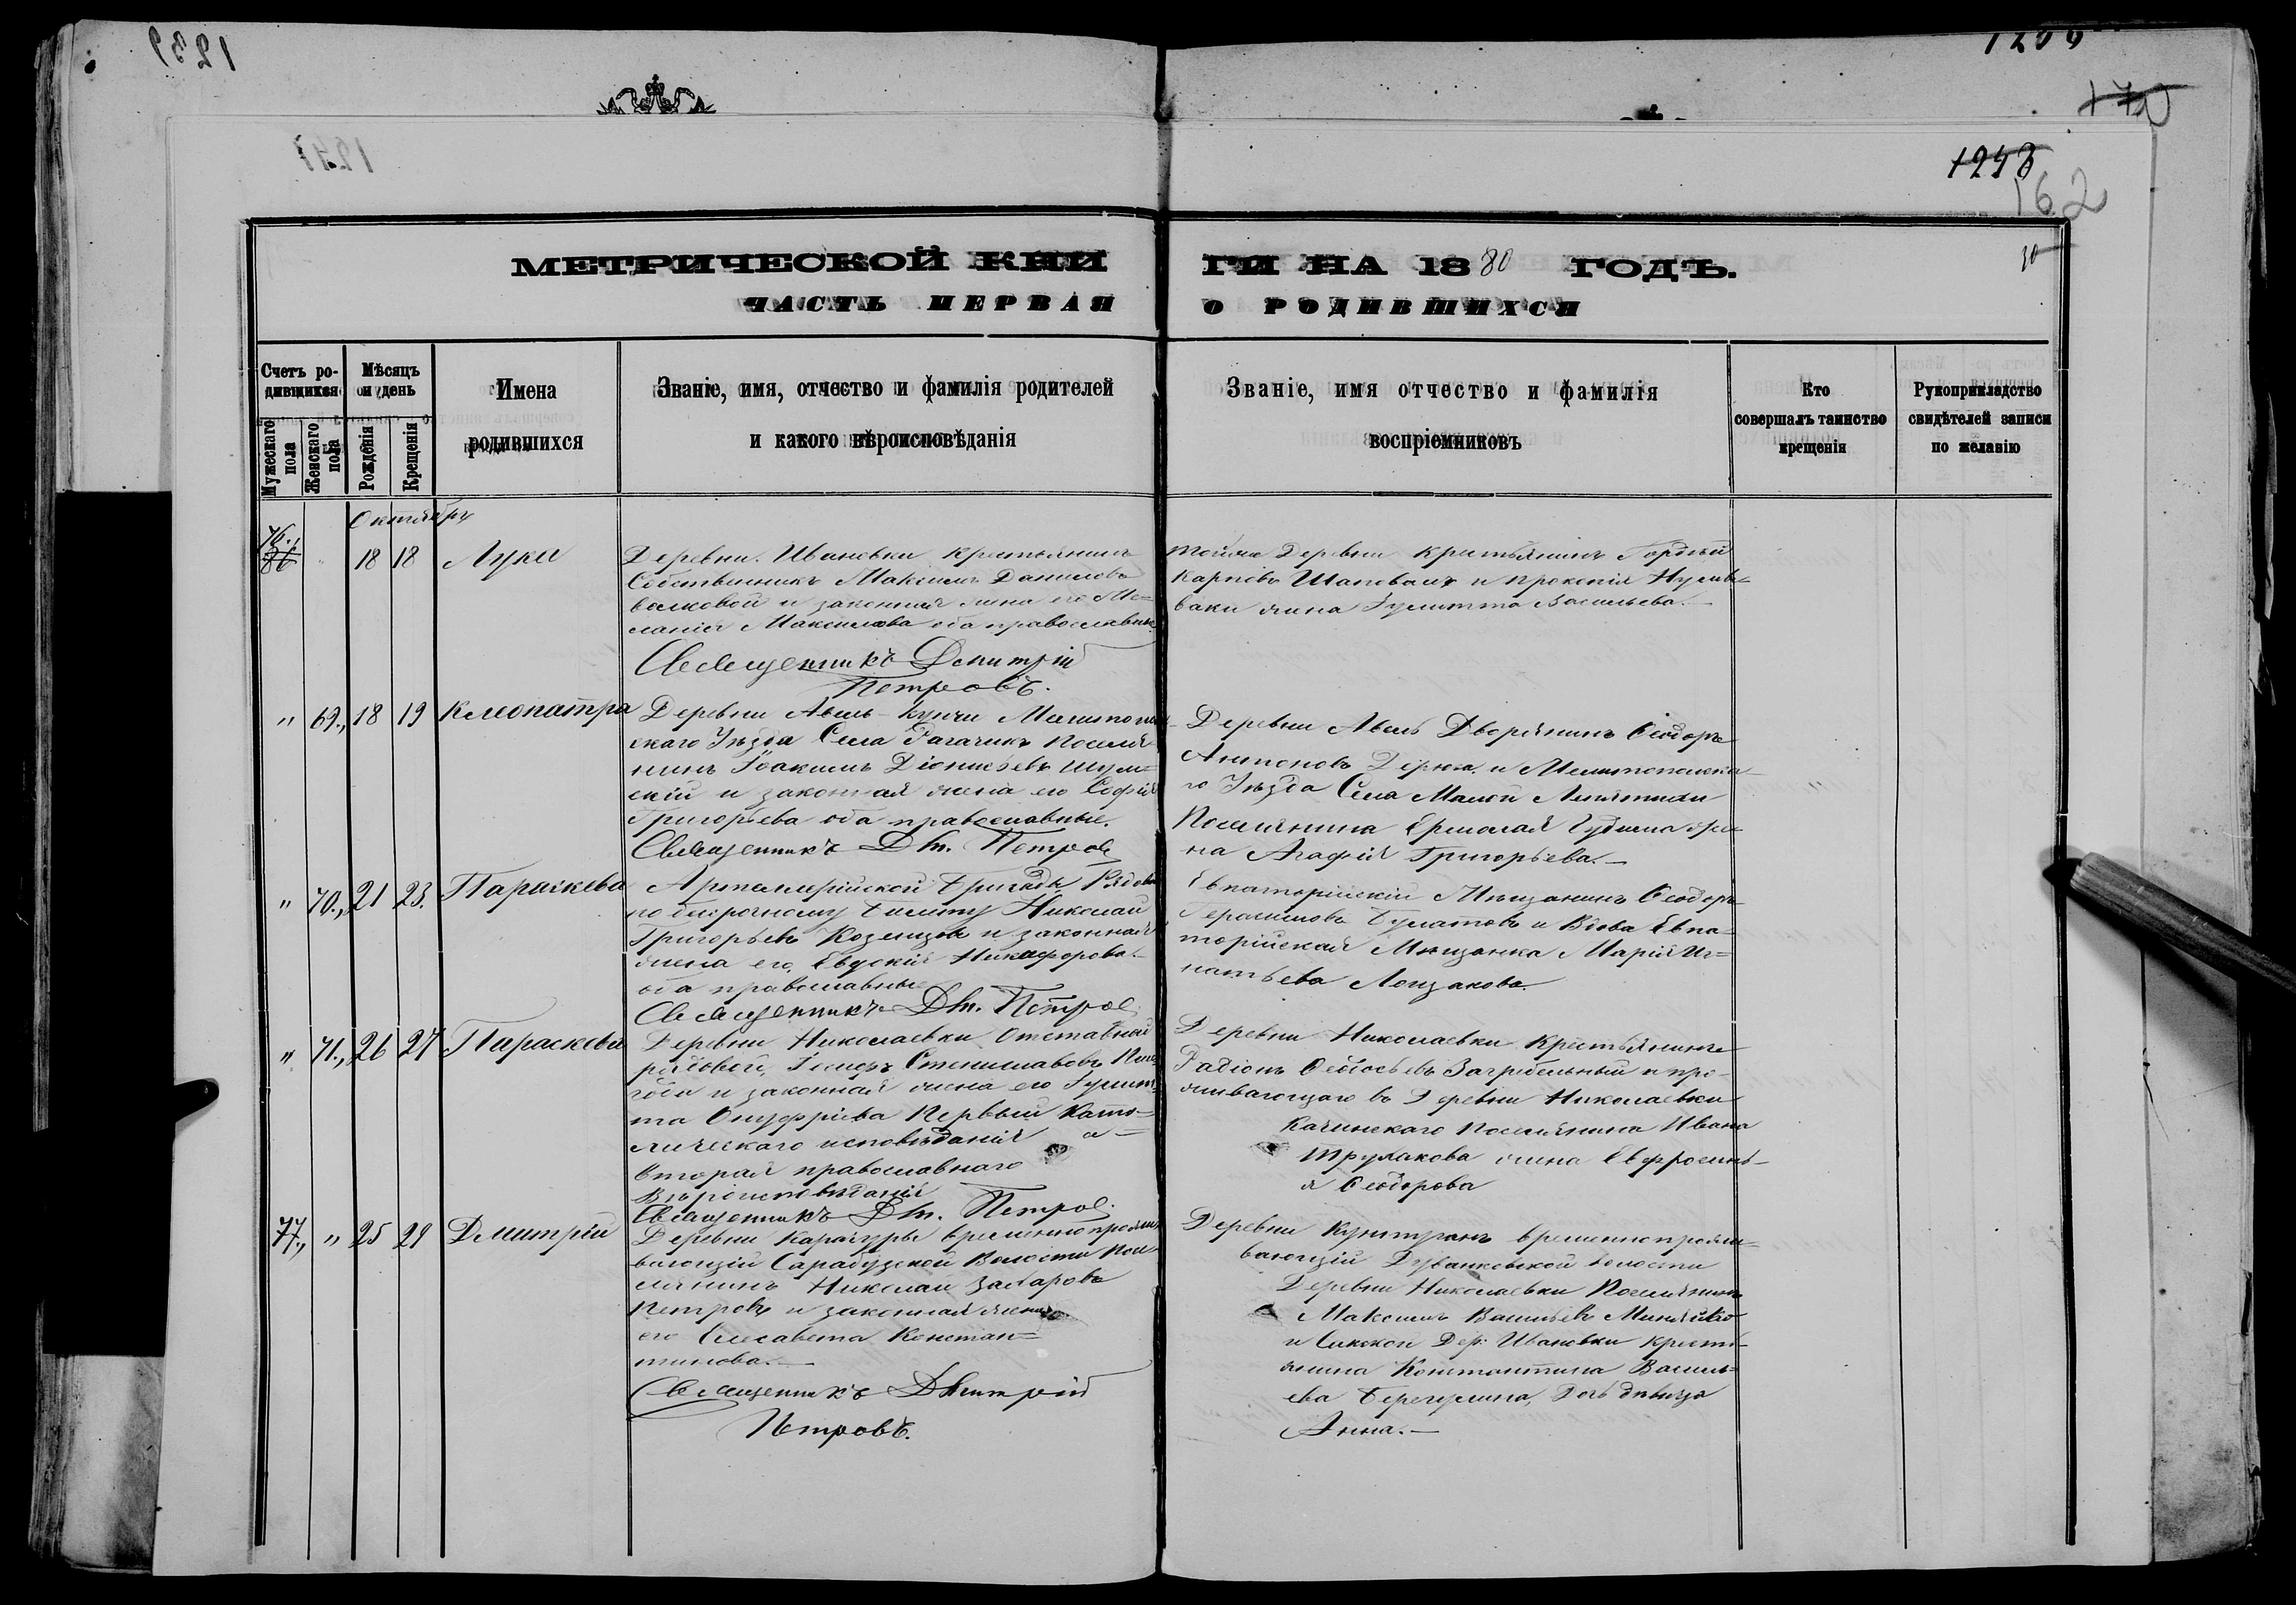 1239
1243
170
162
МЕТРИЧЕСКОЙ КНИГИ НА 1880 ГОДЪ.
30
ЧАСТЬ ПЕРВАЯ О РОДИВШИХСЯ
Счетъ родившихся
Мужескаго пола
Женскаго пола
Мѣсяцъ и день
Рожденія
Крещенія
Имена
родившихся
Званіе, имя, отчество и фамилія родителей
и какого вѣроисповѣданія
Званіе, имя отчество и фамилія
воспріемниковъ
Кто
совершалъ таинство
крещенія
Рукоприкладство
свидѣтелей записи
по желанію
Октябрь
76.,
86
18 18 Лука
Деревни Ивановки крестьянинъ
Собственникъ Максимъ Даниловъ
и законная жена его Ме=
ланія Максимова оба православные
Священникъ Димитрій
Петровъ.
тойже Деревни крестьянинъ Гордѣй
Карповъ Шаповалъ и
жена Гулитта Васильева.
" 69., 18 19 Клеопатра
Деревни
скаго Уѣзда Села Рагачикъ Поселя
нинъ Іоакимъ Діонисьевъ
скій и законная жена его Софія
Григорьева оба православные.
Священникъ Дм. Петров
Деревни Дворянинъ Ѳеодоръ
Антоновъ и Мелитопольска
го Уѣзда Села Малой Лепятихи
Поселянина Ермолая же
на Агафія Григорьева.
" 70., 21 23. Параскева
Артиллерійской Бригады Рядовой
по безсрочному билету Николай
Григорьевъ и законная
жена его Евдокія Никифорова
оба православные
Священникъ Дм. Петров
Евпаторійскій Мѣщанинъ Ѳеодоръ
Герасимовъ Булатовъ и Вдова Евпа
торійская Мѣщанка Марія Иг=
натьева
" 71., 26 27 Параскева
Деревни Николаевки Отставный
рядовой, Іосифъ Стениславовъ
и законная жена его Гулит
та Онуфріева Первый Като=
лическаго исповѣданія а
вторая православнаго
Вѣроисповѣданія
Священникъ Дм. Петров.
Деревни Николаевки Крестьянинъ
Радіонъ Ѳедосьевъ Загребельный и про
живающаго въ Деревни Николаевки
Качинскаго Поселянина Ивана
жена Евфросинь
я Ѳеодорова
77., " 25 29 Дмитрій
Деревни Карагуры временно прожи
вающій Сарабузской Волости Посе
лянинъ Николай Захаровъ
Петровъ и законная жена
его Елисавета Констан=
тинова.
Священникъ Дмитрій
Петровъ.
Деревни временно прожи=
вающій Дуванкойской волости
Деревни Николаевки Поселянинъ
Максимъ Васильевъ
и Дер: Ивановки крестъ
янина Константина Василь
ева дочь дѣвица
Анна.